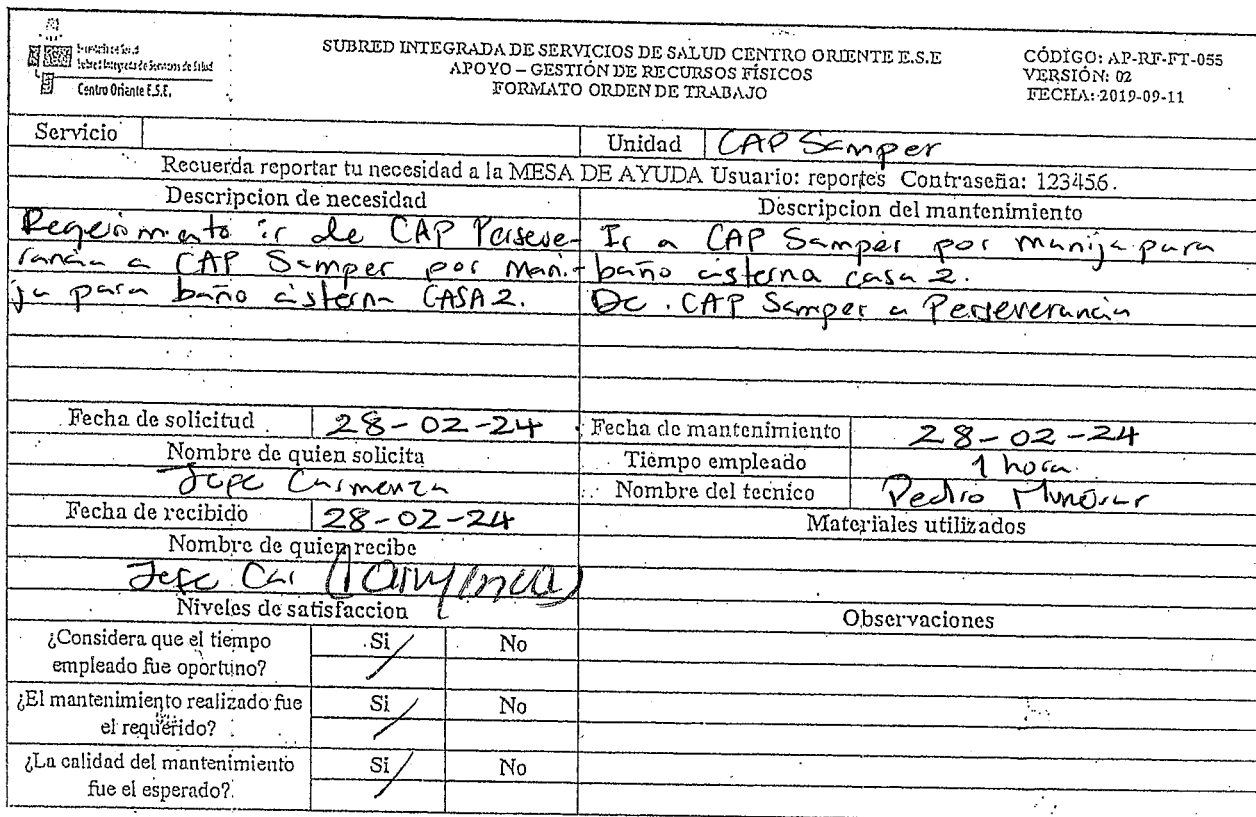 Subred Integrada de Servicios de Salud
Centro Oriente E.S.E.
SUBRED INTEGRADA DE SERVICIOS DE SALUD CENTRO ORIENTE E.S.E
APOYO – GESTIÓN DE RECURSOS FÍSICOS
FORMATO ORDEN DE TRABAJO
CÓDIGO: AP-RF-FT-055
VERSIÓN: 02
FECHA: 2019-09-11
Servicio
Unidad CAP Samper
Recuerda reportar tu necesidad a la MESA DE AYUDA Usuario: reportes Contraseña: 123456.
Descripcion de necesidad
Requerimiento ir de CAP Perseve-
rancia a CAP Samper por mani-
ja para baño cisterna CASA 2.
Descripcion del mantenimiento
Ir a CAP Samper por manija para
baño cisterna casa 2.
De CAP Samper a Perseverancia
Fecha de solicitud 28-02-24
Fecha de mantenimiento 28-02-24
Nombre de quien solicita
Jefe Carmenza
Tiempo empleado 1 hora.
Nombre del tecnico Pedro
Fecha de recibido 28-02-24
Materiales utilizados
Nombre de quien recibe
Jefe Car
Niveles de satisfaccion
Observaciones
¿Considera que el tiempo
empleado fue oportuno?
Si No
¿El mantenimiento realizado fue
el requerido?
Si No
¿La calidad del mantenimiento
fue el esperado?
Si No